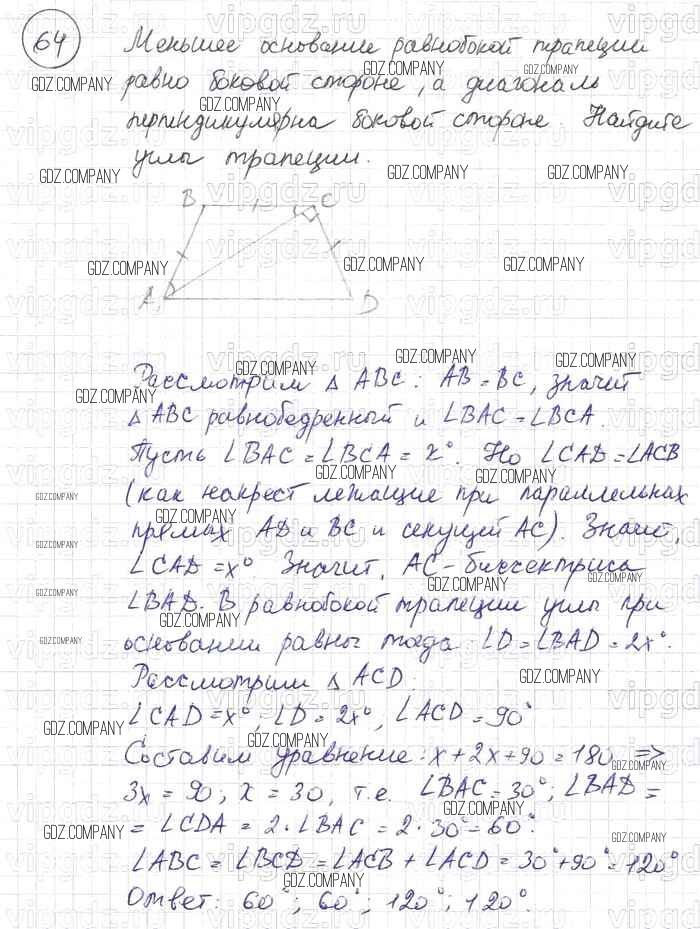 64
Меньшее основание равнобокой трапеции
равно боковой стороне, а диагональ
перпендикулярна боковой стороне. Найдите
углы трапеции.
B C
A D
Рассмотрим △ ABC: AB = BC, значит
△ ABC равнобедренный и ∠BAC = ∠BCA.
Пусть ∠BAC = ∠BCA = x°. Но ∠CAD = ∠ACB
(как накрест лежащие при параллельных
прямых AD и BC и секущей AC). Значит,
∠CAD = x°. Значит, AC - биссектриса
∠BAD. В равнобокой трапеции углы при
основании равны тогда ∠D = ∠BAD = 2x°.
Рассмотрим △ ACD
∠CAD = x°, ∠D = 2x°, ∠ACD = 90°
Составим уравнение: x + 2x + 90 = 180 =>
3x = 90; x = 30, т.е. ∠BAC = 30°; ∠BAD =
= ∠CDA = 2·∠BAC = 2·30° = 60°.
∠ABC = ∠BCD = ∠ACB + ∠ACD = 30° + 90° = 120°
Ответ: 60°; 60°; 120°; 120°.
GDZ.COMPANY
vipgdz.ru